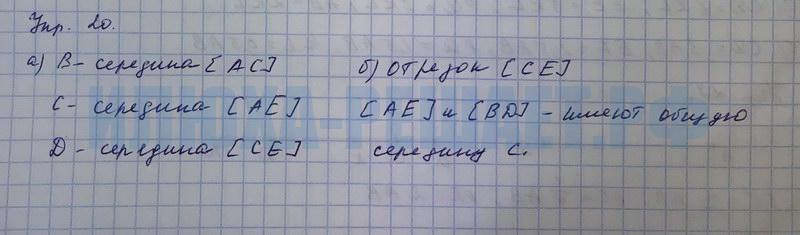 Упр. 20.
а) В - середина [АС]
С - середина [АЕ]
D - середина [СЕ]
б) Отрезок [СЕ]
[АЕ] и [BD] - имеют общую
середину С.